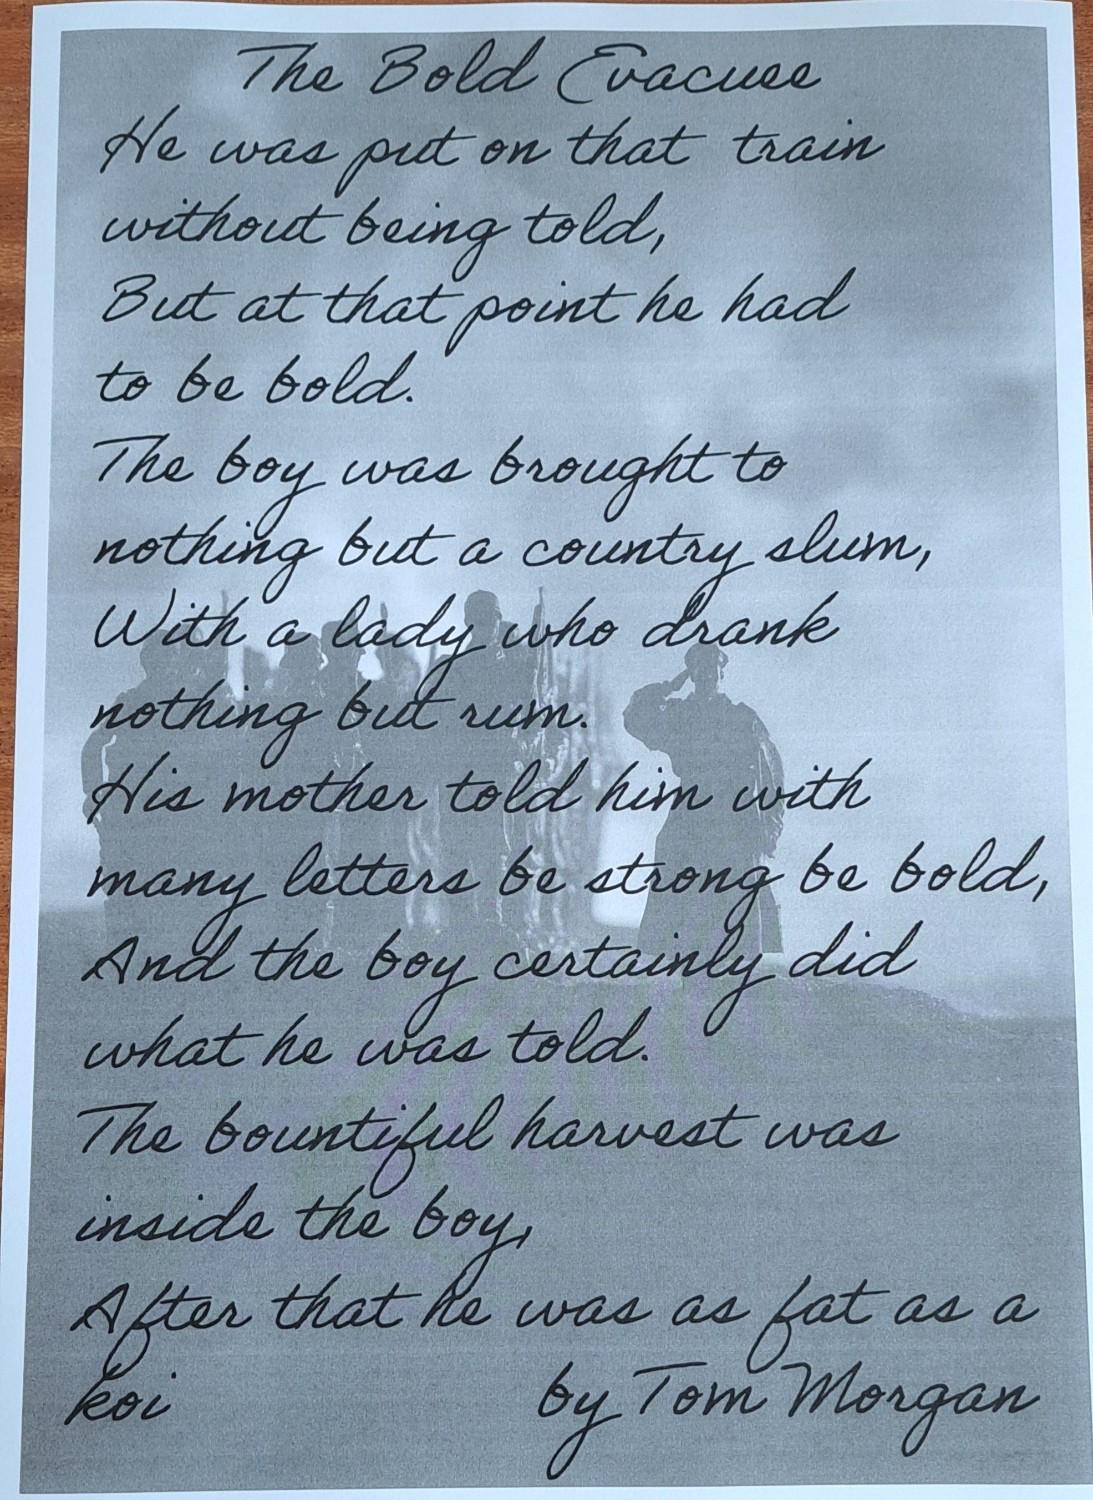 The Bold Evacuee
He was put on that train
without being told,
But at that point he had
to be bold.
The boy was brought to
nothing but a country slum,
With a lady who drank
nothing but rum.
His mother told him with
many letters be strong be bold,
And the boy certainly did
what he was told.
The bountiful harvest was
inside the boy,
After that he was as fat as a
koi by Tom Morgan